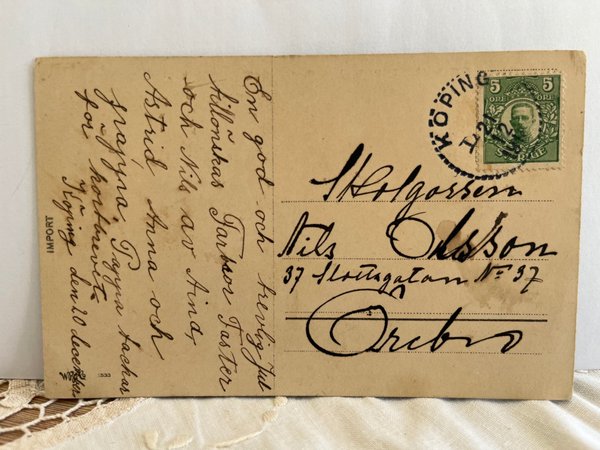 En god och trevlig Jul
tillönskas Farbror Faster
och Nils av Aina,
Astrid Anna och
pappa. Pappa tackar
för kortbrevet
Köping den 20 december
IMPORT
1533
KÖPING
5 5
ÖRE ÖRE
SVERIGE
Nils Olsson
37 Slottsgatan No 37
Örebro